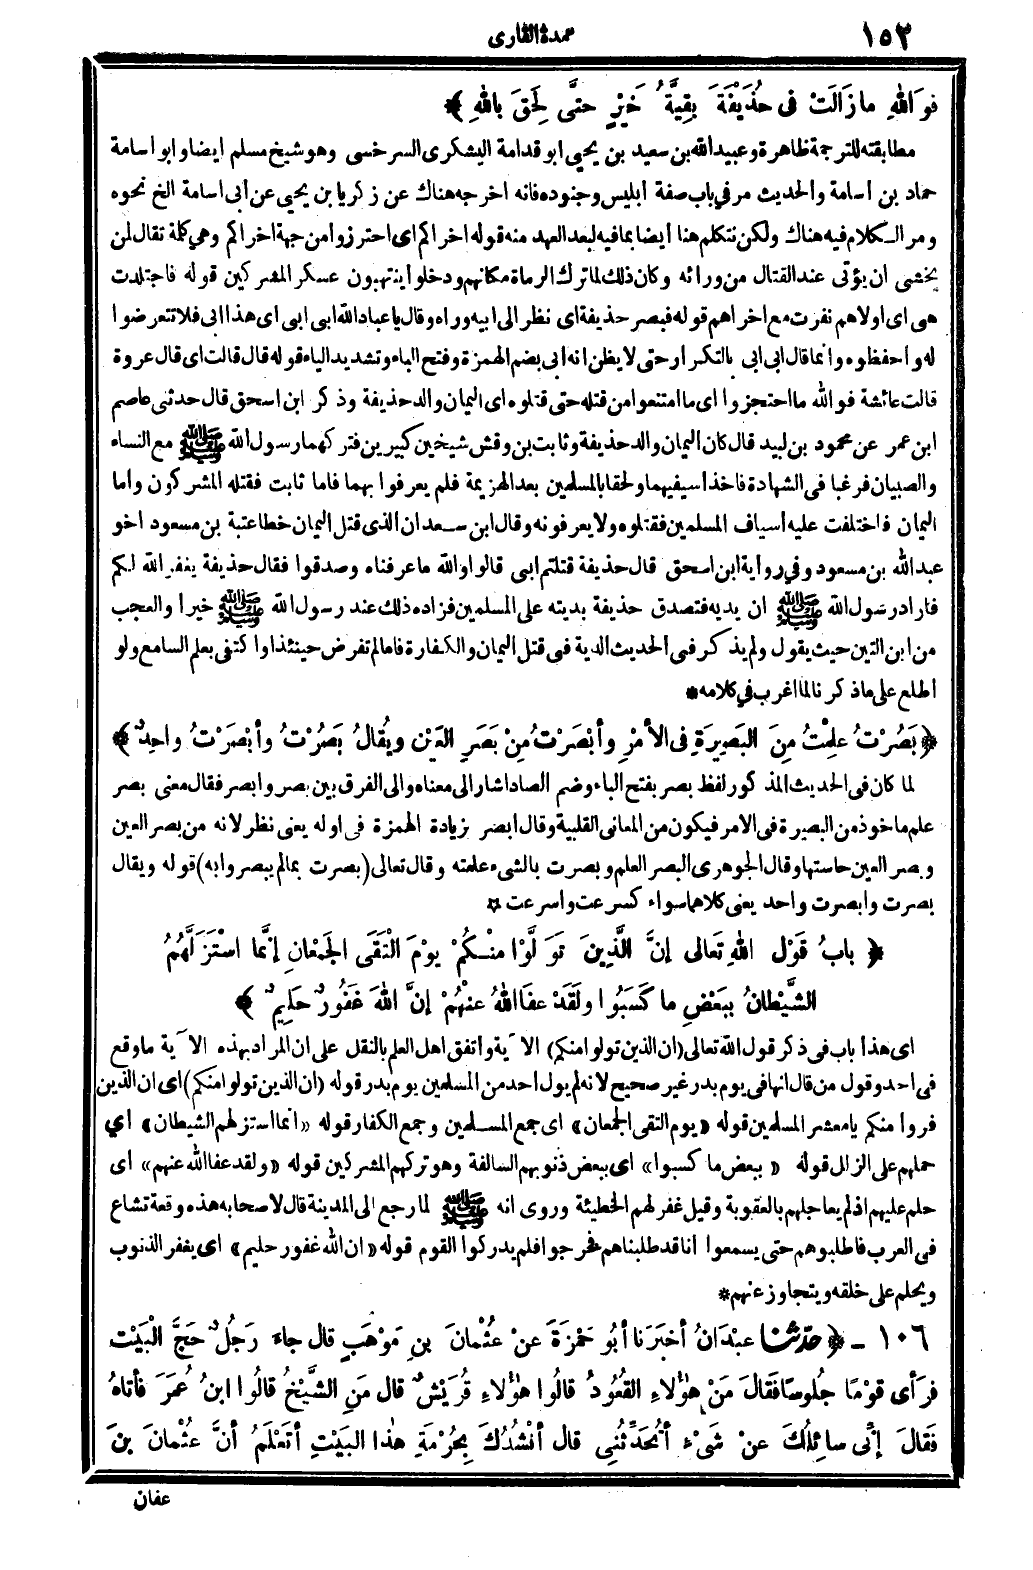 ١٥٢
عمدة القارى
فَوَاللهِ مازَالَتْ فى حُذَيْفَةَ بَقِيَّةُ خَيْرٍ حتَّى لَحِقَ باللهِ ﴾
مطابقته للترجمة ظاهرة وعبيد الله بن سعيد بن يحيى ابو قدامة اليشكرى السرخسى وهو شيخ مسلم ايضا وابو اسامة
حماد بن اسامة والحديث مر في باب صفة ابليس وجنوده فانه اخرجه هناك عن زكريا بن يحيى عن أبى اسامة الخ نحوه
ومر الكلام فيه هناك ولكن نتكلم هنا أيضا بما فيه لبعد العهد منه قوله اخراكم اى احترزوا من جهة اخراكم وهي كلمة تقال لمن
يخشى ان يؤتى عند القتال من ورائه وكان ذلك لما ترك الرماة مكانهم ودخلوا ينتهبون عسكر المشركين قوله فاجتلدت
هى اى اولاهم نفرت مع اخراهم قوله فبصر حذيفة اى نظر الى ابيه وراه وقال يا عباد الله ابى ابى اى هذا ابى فلا تتعرضوا
له واحفظوه وانما قال ابى ابى بالتكرار حتى لا يظن انه ابى بضم الهمزة وفتح الباء وتشديد الياء قوله قال قالت اى قال عروة
قالت عائشة فوالله ما احتجزوا اى ما امتنعوا من قتله حتى قتلوه اى اليمان والد حذيفة وذكر ابن اسحق قال حدثنى عاصم
ابن عمر عن محمود بن لبيد قال كان اليمان والد حذيفة وثابت بن وقش شيخين كبيرين فتركهما رسول الله ﷺ مع النساء
والصبيان فرغبا فى الشهادة فاخذا سيفيهما ولحقا بالمسلمين بعد الهزيمة فلم يعرفوا بهما فاما ثابت فقتله المشركون واما
اليمان فاختلفت عليه أسياف المسلمين فقتلوه ولا يعرفونه وقال ابن سعد ان الذى قتل اليمان خطا عتبة بن مسعود اخو
عبد الله بن مسعود وفي رواية ابن اسحق قال حذيفة قتلتم ابى قالوا والله ما عرفناه وصدقوا فقال حذيفة يغفر الله لكم
فاراد رسول الله ﷺ ان يديه فتصدق حذيفة بديته على المسلمين فزاده ذلك عند رسول الله ﷺ خيرا والعجب
من ابن التين حيث يقول ولم يذكر فى الحديث الدية فى قتل اليمان والكفارة فاما لم تفرض حينئذ او اكتفى بعلم السامع ولو
اطلع على ما ذكرنا لما اغرب في كلامه*
﴿ بَصُرْتُ علِمْتُ مِنَ البَصِيرَةِ فى الأمْرِ وأبْصَرْتُ مِنْ بَصَرِ العَيْنِ ويُقالُ بَصُرْتُ وأبْصَرْتُ واحِدٌ ﴾
لما كان فى الحديث المذكور لفظ بصر بفتح الباء وضم الصاد اشار الى معناه والى الفرق بين بصر وابصر فقال معنى بصر
علم ماخوذ من البصيرة فى الامر فيكون من المعانى القلبية وقال ابصر بزيادة الهمزة فى اوله يعنى نظر لانه من بصر العين
وبصر العين حاستها وقال الجوهرى البصر العلم وبصرت بالشىء علمته وقال تعالى (بصرت بما لم يبصروا به) قوله ويقال
بصرت وابصرت واحد يعنى كلاهما سواء كسرعت واسرعت ¤
﴿ بابُ قَوْلِ اللهِ تعالى إنَّ الَّذِينَ تَوَلَّوْا منْكُمْ يومَ الْتَقَى الجَمْعانِ إنَّما اسْتَزَلَّهُمُ
الشَّيْطانُ ببَعْضِ ما كَسَبُوا ولَقَدْ عفَا اللهُ عنْهُمْ إنَّ اللهَ غَفُورٌ حَلِيمٌ ﴾
اى هذا باب فى ذكر قول الله تعالى (ان الذين تولوا منكم) الآية واتفق اهل العلم بالنقل على ان المراد بهذه الآية ما وقع
فى احد وقول من قال انها في يوم بدر غير صحيح لانه لم يول احد من المسلمين يوم بدر قوله (ان الذين تولوا منكم) اى ان الذين
فروا منكم يا معشر المسلمين قوله «يوم التقى الجمعان» اى جمع المسلمين وجمع الكفار قوله «انما استزلهم الشيطان» اي
حملهم على الزلل قوله «ببعض ما كسبوا» اى ببعض ذنوبهم السالفة وهو تركهم المشركين قوله «ولقد عفا الله عنهم» اى
حلم عليهم اذ لم يعاجلهم بالعقوبة وقيل غفر لهم الخطيئة وروى انه ﷺ لما رجع الى المدينة قال لاصحابه هذه وقعة تشاع
فى العرب فاطلبوهم حتى يسمعوا انا قد طلبناهم فخرجوا فلم يدركوا القوم قوله «ان الله غفور حليم» اى يغفر الذنوب
ويحلم على خلقه ويتجاوز عنهم*
١٠٦ - ﴿ حدّثنا عبْدَانُ أخبَرَنا أبُو حَمْزَةَ عنْ عُثْمانَ بنِ مَوْهَبٍ قال جاءَ رَجُلٌ حَجَّ الْبَيْتَ
فرَأى قوْمًا جُلوسًا فقال مَنْ هؤُلاءِ القُعُودُ قالُوا هؤُلاءِ قُرَيْشٌ قال مَنِ الشَّيْخُ قالُوا ابنُ عُمَرَ فأتاهُ
فقالَ إنِّى سائِلُكَ عنْ شَىْءٍ أتُحَدِّثُنِى قال أنْشُدُكَ بِحُرْمَةِ هذَا البَيْتِ أتَعْلَمُ أنَّ عُثْمانَ بنَ
عفان